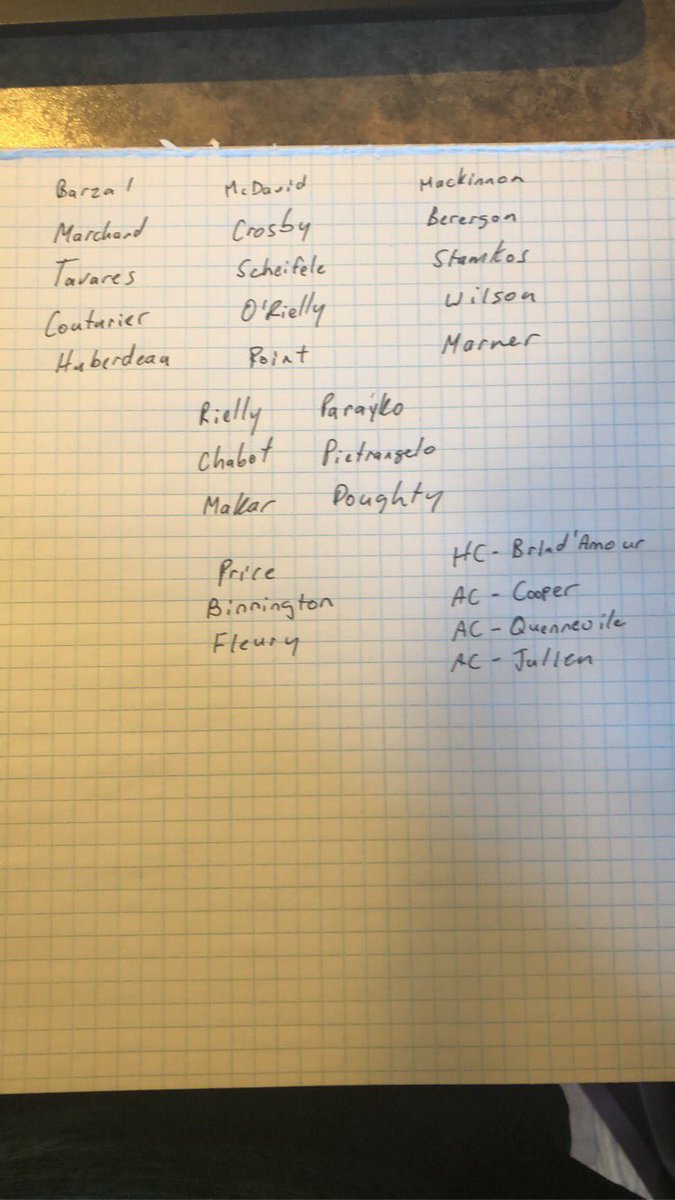 Barzal McDavid Mackinnon
Marchand Crosby Berergon
Tavares Scheifele Stamkos
Couturier O'Rielly Wilson
Huberdeau Point Marner
Rielly Parayko
Chabot Pietrangelo
Makar Doughty
Price HC - Brind'Amour
Binnington AC - Cooper
Fleury AC - Quennevile
AC - Julien